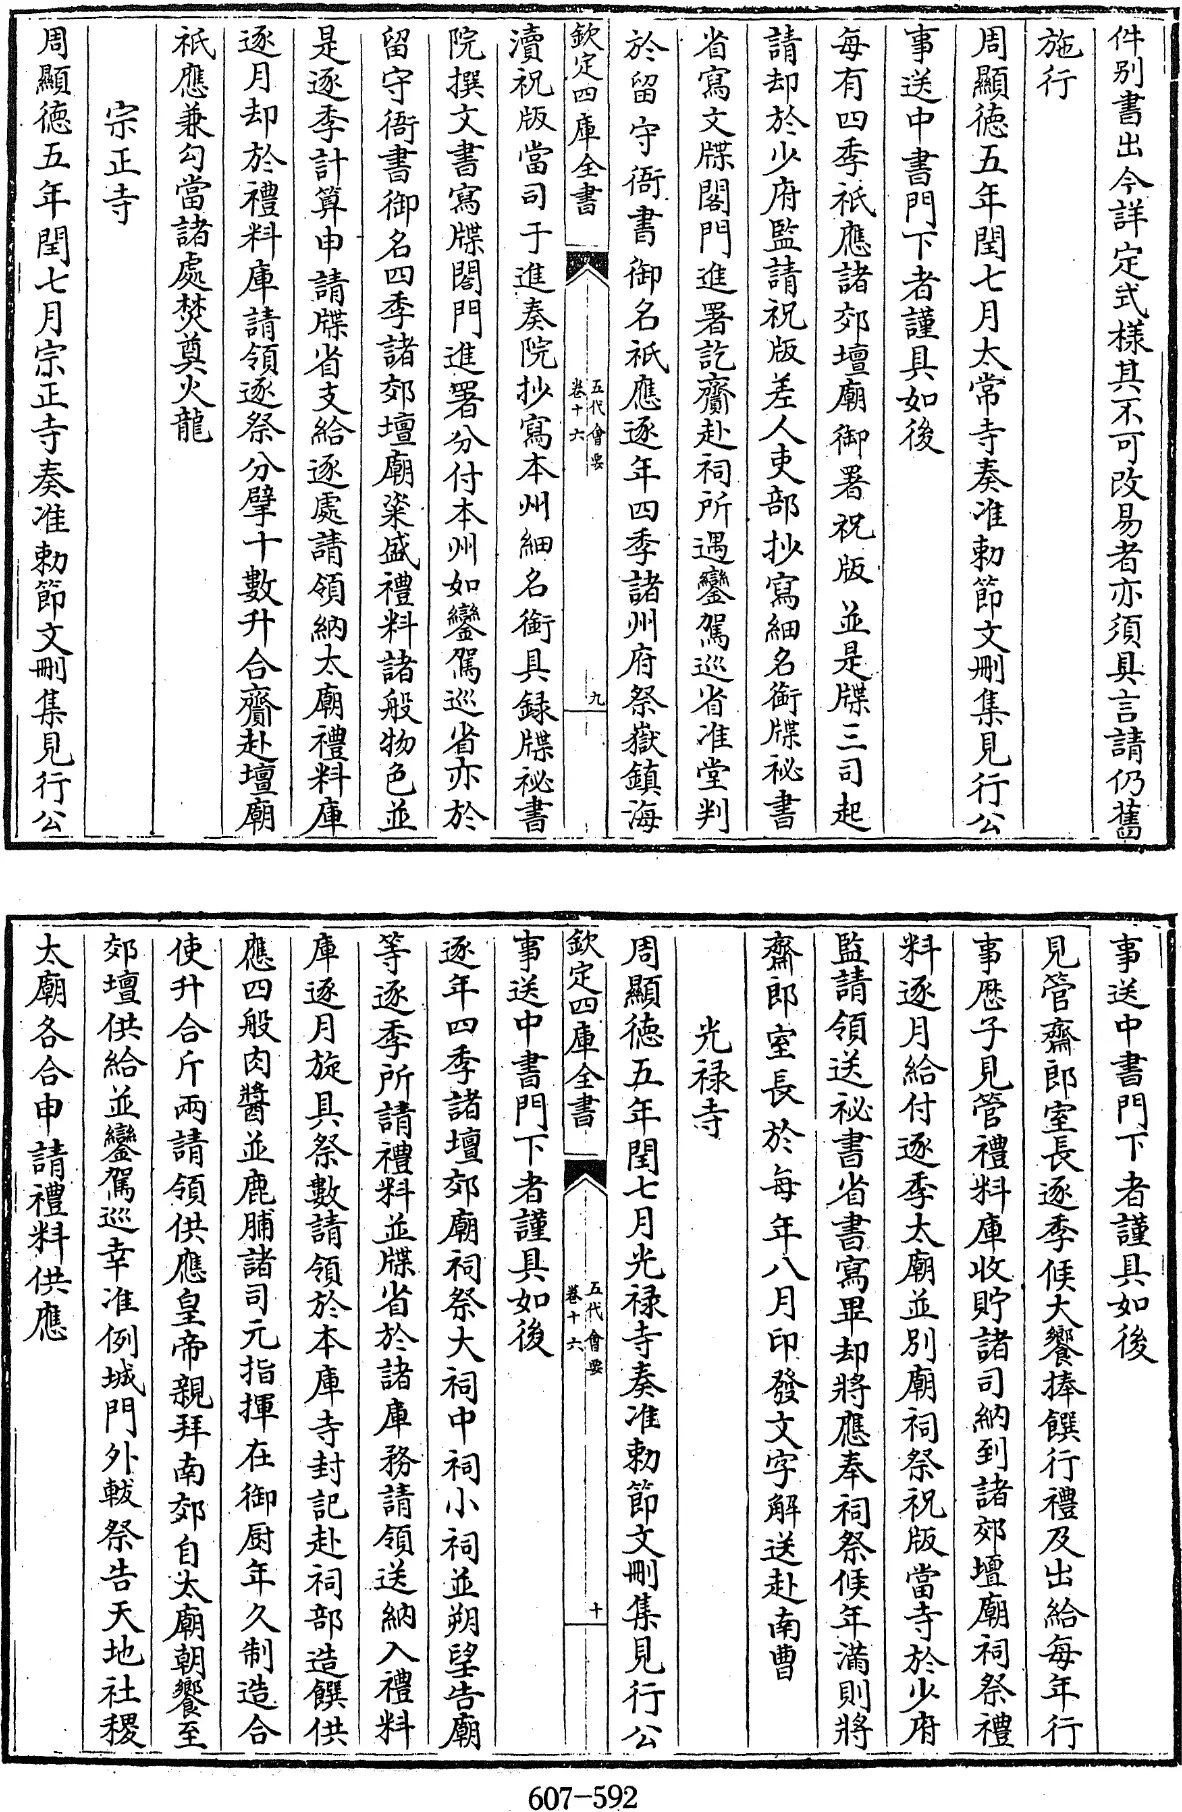 件别書出今詳定式様其不可改易者亦須具言請仍舊
施行
周顯徳五年閏七月太常寺奏准勅節文刪集見行公
事送中書門下者謹具如後
每有四季祗應諸郊壇廟御署祝版並是牒三司起
請却於少府監請祝版差人吏部抄寫細名銜牒祕書
省寫文牒閣門進署訖齎赴祠所遇鑾駕巡省准堂判
於留守衙書御名祇應逐年四季諸州府祭嶽鎮海
欽定四庫全書
五代會要
卷十六
九
瀆祝版當司于進奏院抄寫本州細名銜具録牒祕書
院撰文書寫牒閣門進署分付本州如鑾駕巡省亦於
留守衙書御名四季諸郊壇廟粢盛禮料諸般物色並
是逐季計算申請牒省支給逐處請領納太廟禮料庫
逐月却於禮料庫請領逐祭分擘十數升合齎赴壇廟
祇應兼勾當諸處焚奠火龍
宗正寺
周顯徳五年閏七月宗正寺奏准勅節文刪集見行公
事送中書門下者謹具如後
見管齋郎室長逐季候大饗捧饌行禮及出給每年行
事歴子見管禮料庫收貯諸司納到諸郊壇廟祠祭禮
料逐月給付逐季太廟並別廟祠祭祝版當寺於少府
監請領送祕書省書寫畢却將應奉祠祭候年滿則將
齋郎室長於每年八月印發文字解送赴南曹
光禄寺
周顯徳五年閏七月光禄寺奏准勅節文刪集見行公
欽定四庫全書
五代會要
卷十六
十
事送中書門下者謹具如後
逐年四季諸壇郊廟祠祭大祠中祠小祠並朔望告廟
等逐季所請禮料並牒省於諸庫務請領送納入禮料
庫逐月旋具祭數請領於本庫寺封記赴祠部造饌供
應四般肉醬並鹿脯諸司元指揮在御厨年久制造合
使升合斤兩請領供應皇帝親拜南郊自太廟朝饗至
郊壇供給並鑾駕巡幸准例城門外軷祭告天地社稷
太廟各合申請禮料供應
607-592